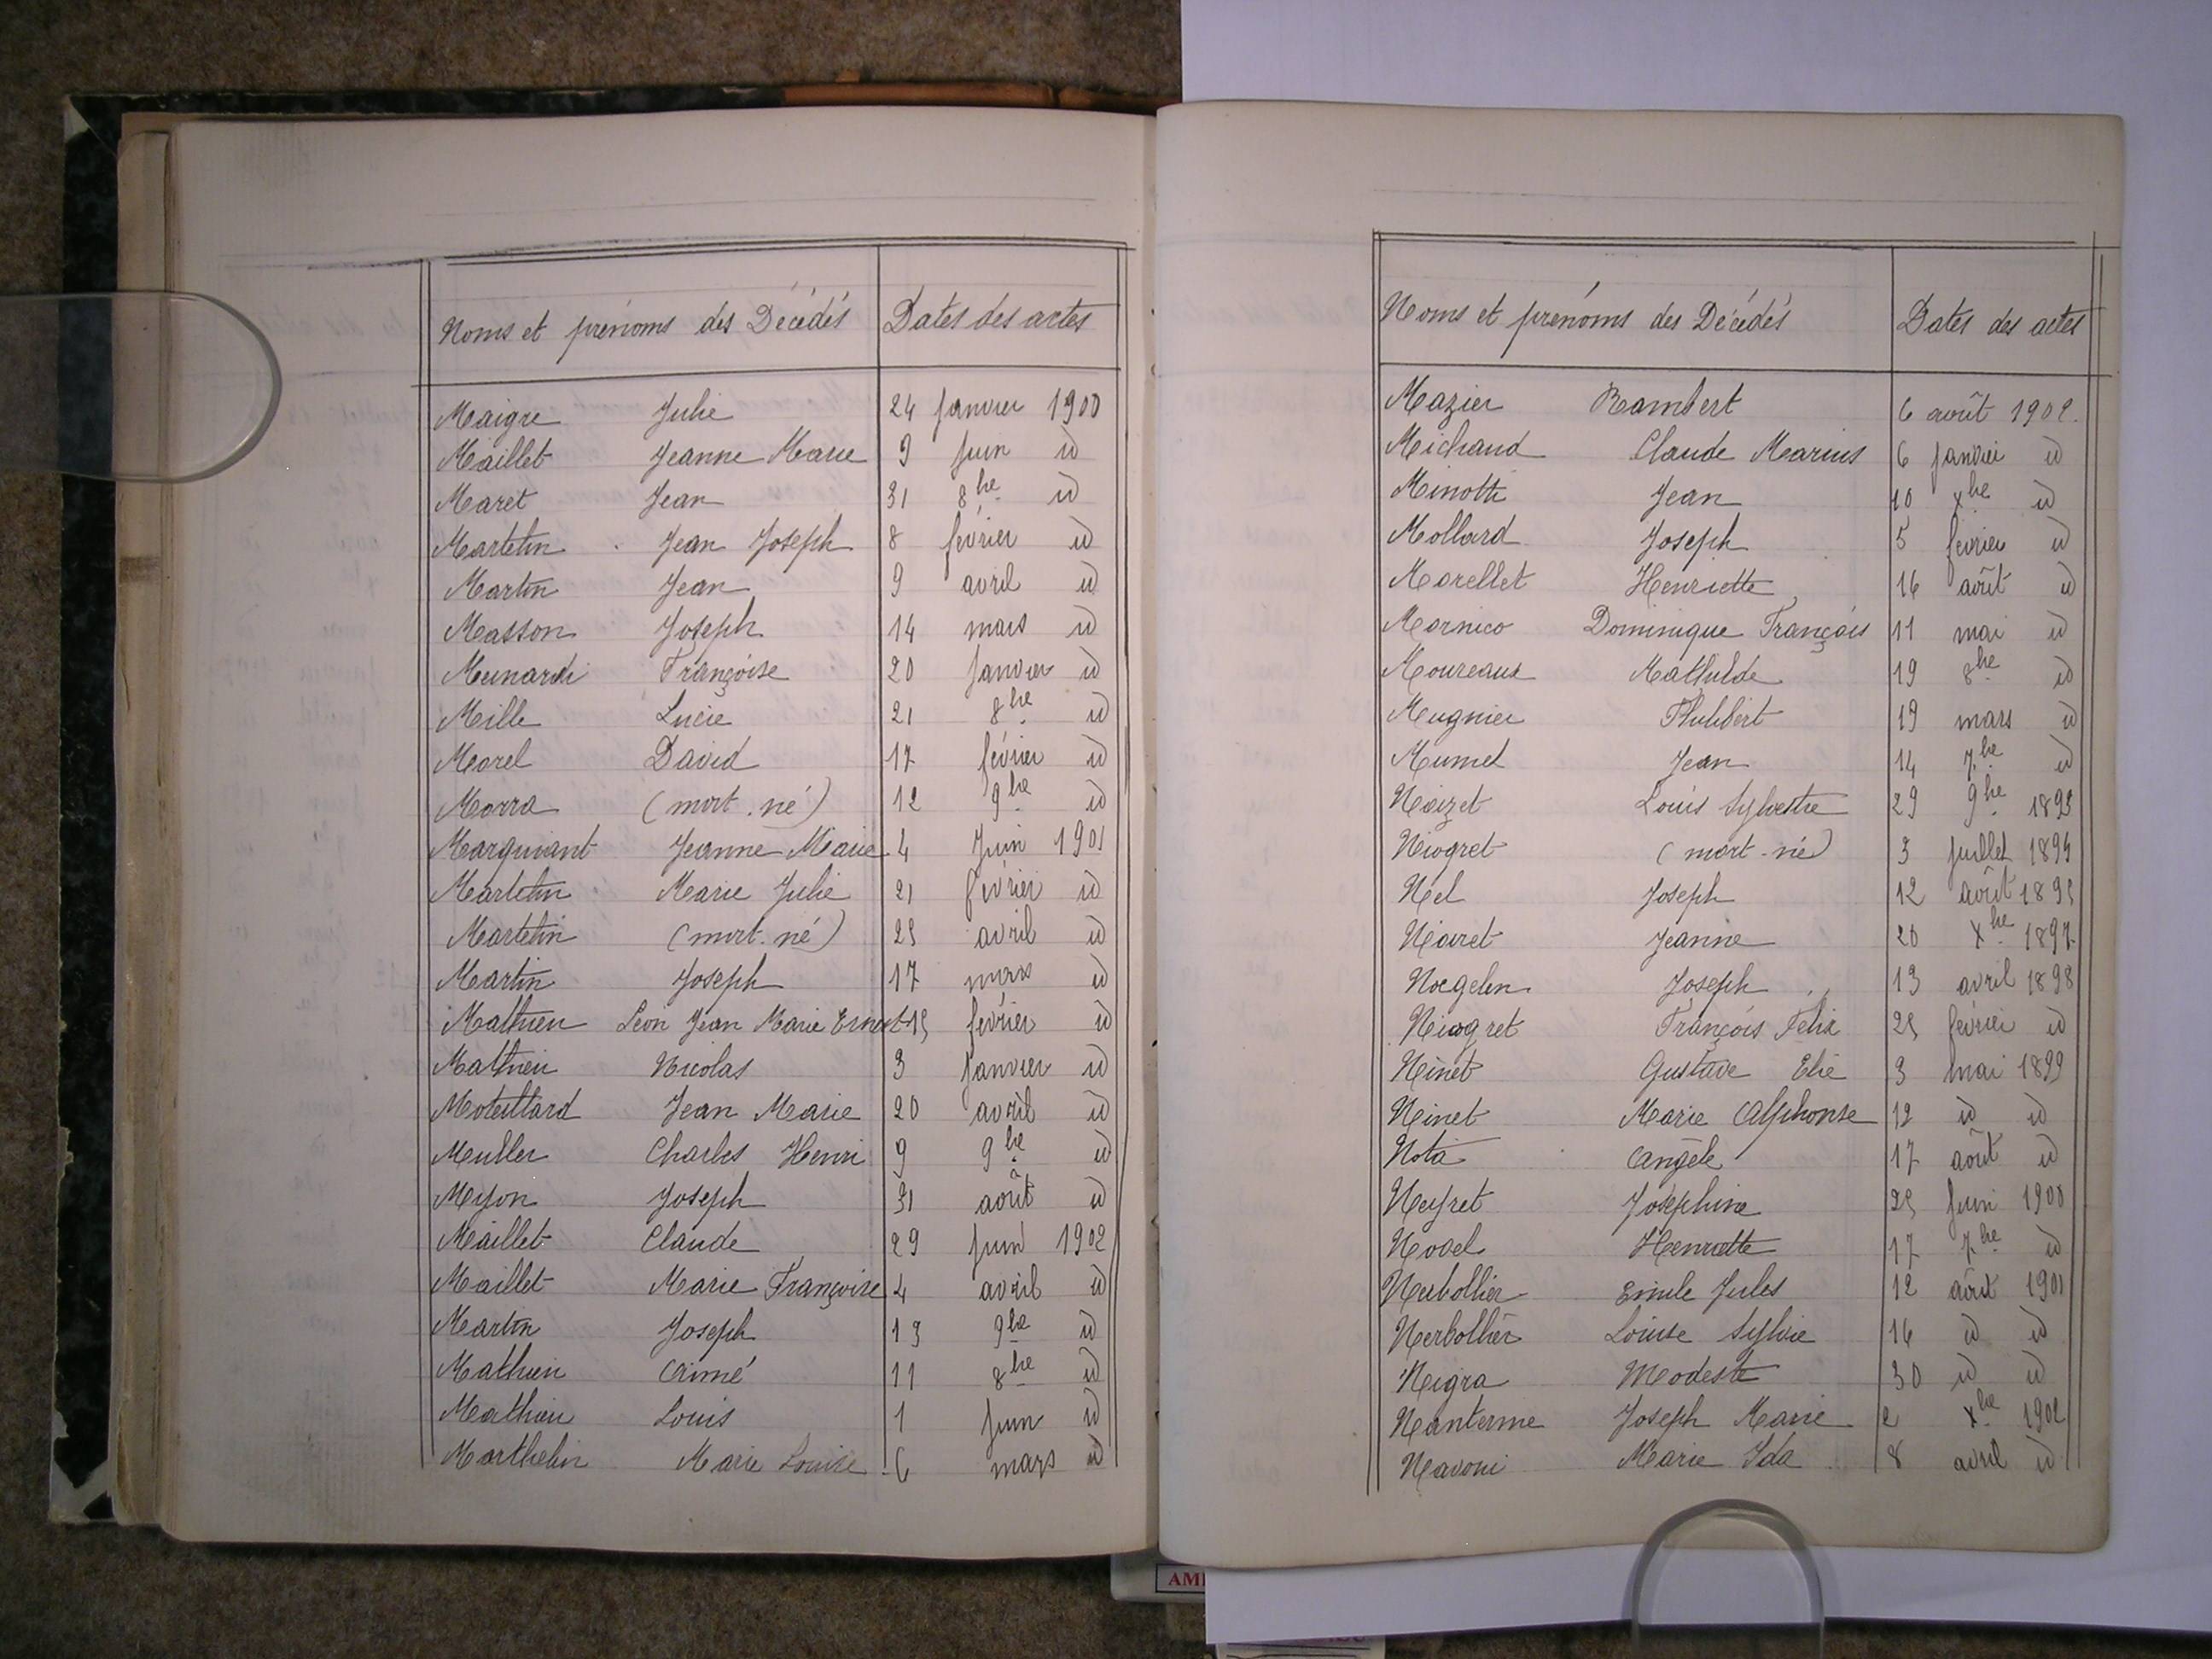 Noms et prénoms des Décédés Dates des actes
Maigre Julie 24 janvier 1900
Maillet Jeanne Marie 9 Juin id
Maret Jean 31 8bre id
Martelin Jean Joseph 8 février id
Martin Jean 9 avril id
Masson Joseph 14 mars id
Meinardi Françoise 20 Janvier id
Mille Lucie 21 8bre id
Morel David 17 février id
Morra (mort-né) 12 9bre id
Marguivant Jeanne Marie 4 Juin 1901
Martelin Marie Julie 21 février id
Martelin (mort-né) 25 avril id
Martin Joseph 17 mars id
Mathieu Léon Jean Marie Ernest 15 février id
Mathieu Nicolas 3 janvier id
Moteillard Jean Marie 20 avril id
Muller Charles Henri 9 9bre id
Myon Joseph 31 août id
Maillet Claude 29 juin 1902
Maillet Marie Françoise 4 avril id
Martin Joseph 13 9bre id
Mathieu Aimé 11 8bre id
Mathieu Louis 1 Juin id
Marthelin Marie Louise 6 mars id
Noms et prénoms des Décédés Dates des actes
Mazier Rambert 6 août 1902.
Michaud Claude Marius 6 janvier id
Minotti Jean 10 xbre id
Mollard Joseph 5 février id
Morellet Henriette 16 août id
Mornico Dominique François 11 mai id
Moureaux Mathilde 19 8bre id
Mugnier Philibert 19 mars id
Mumet Jean 14 7bre id
Noizet Louis Sylvestre 29 9bre 1893
Niogret (mort-né) 3 juillet 1894
Nel Joseph 12 août 1895
Noiret Jeanne 20 Xbre 1897
Nogelen Joseph 13 avril 1898
Niogret François Félix 25 février id
Ninet Gustave Elie 3 mai 1899
Ninet Marie Alphonse 12 id id
Nota Angèle 17 août id
Neyret Joséphine 25 juin 1900
Novel Henriette 17 7bre id
Nerbollier Emile Jules 12 août 1901
Nerbollier Louise Sylvie 16 id id
Neigra Modeste 30 id id
Nanterme Joseph Marie 2 Xbre 1902
Navoni Marie Ida 8 avril id